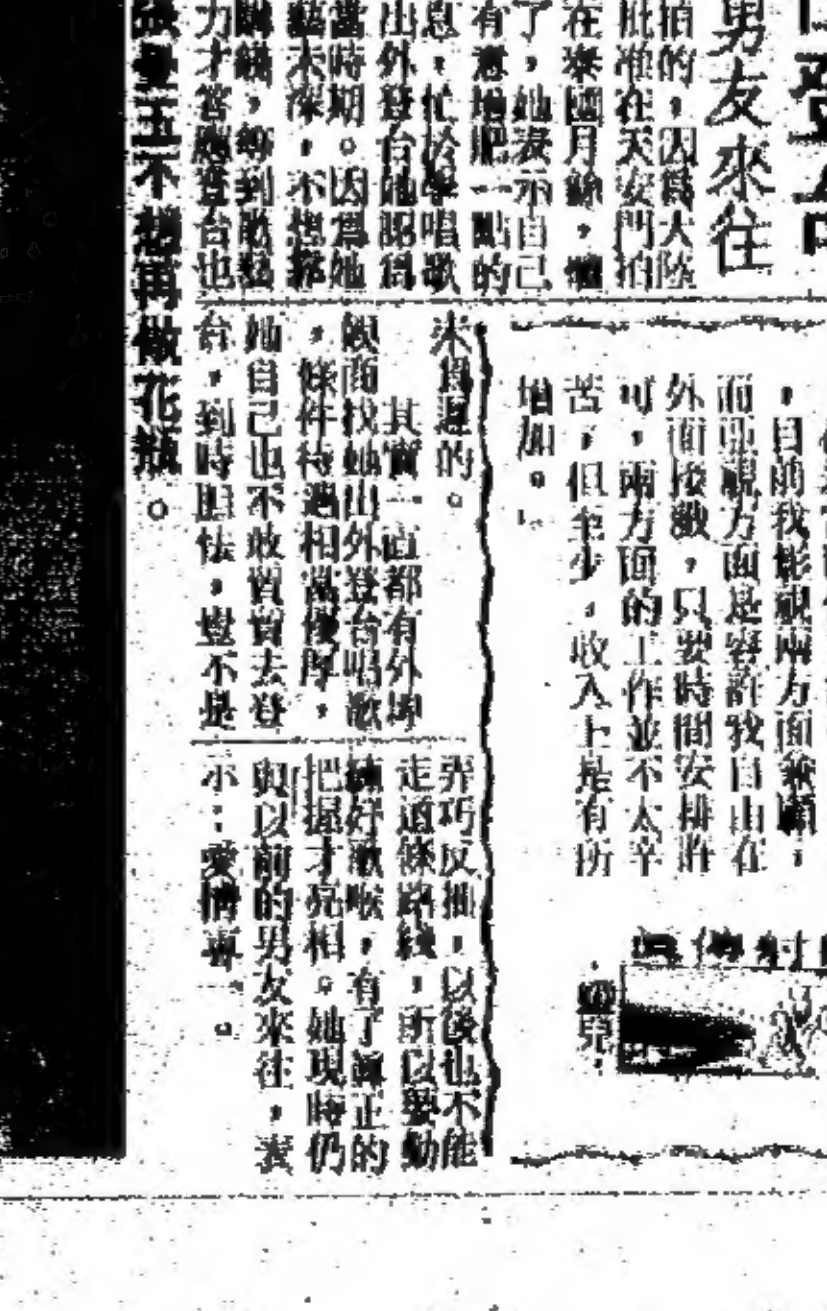 男友來往
拍的，因爲大陸
批准在天安門拍
在泰國月餘，
了，她表示自己
有意增肥一點的
息，忙於學唱歌
出外登台她認爲
當時期。因爲她
藝未深，不想都
力才答應登台也
不想再做花瓶。
未爲遲的。
其實一直都有外埠
娛商找她出外登台唱歌
，條件待遇相當優厚，
她自己也不敢貿貿去登
台，到時胆怯，豈不是
弄巧反拙，以後也不能
走這條路綫，所以要動
練好歌喉，有了眞正的
把握才亮相。她現時仍
與以前的男友來往，表
示：愛情專一。
，目前我影視兩方面兼顧，
而亞視方面是容許我自由在
外面接戲，只要時間安排許
可，兩方面的工作並不太辛
苦，但至少，收入上是有所
增加。